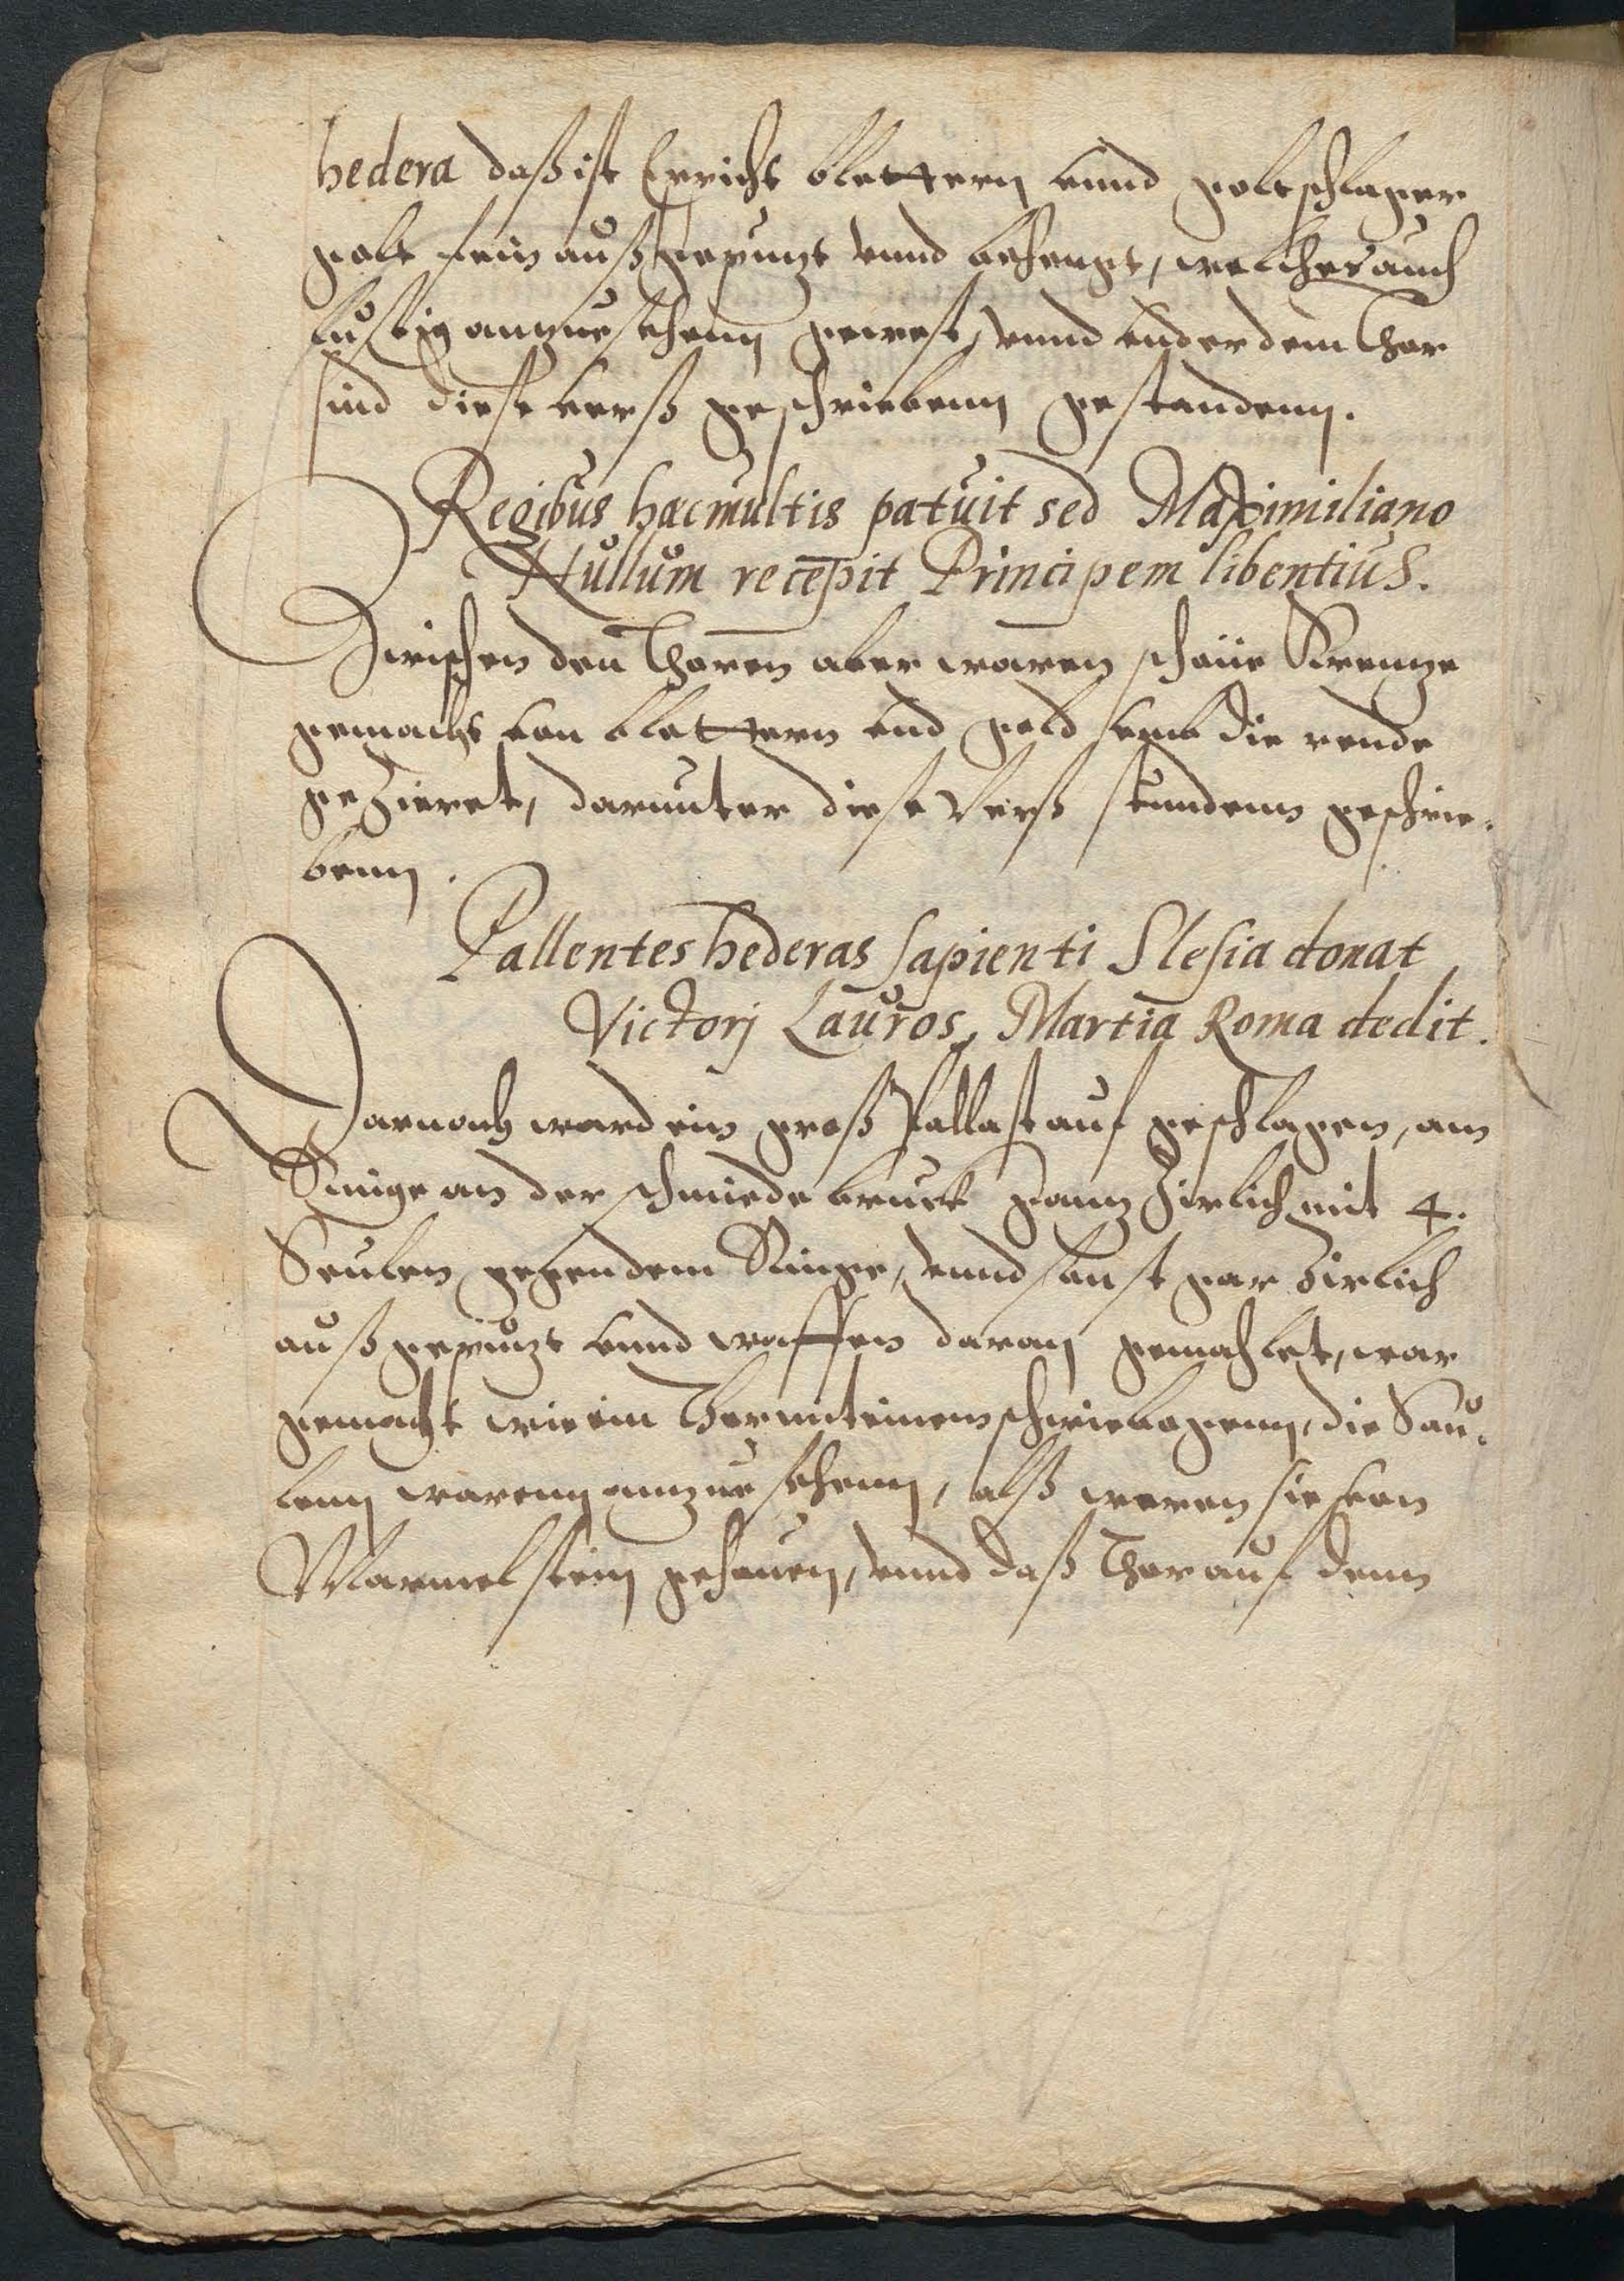 hedera daß ist Eppicht blettern vnnd goltschlager
golt fein außgepuzt vnnd behengt, welches auch
lustig anzuesehenn gewest, vnnd vnder dem Thor
sind diese verß geschriebenn gestandenn.
Regibus hæc multis patuit sed Maximiliano
Nullum recepit Principem libentius.
Zwischen den Thoren aber waren schöne Krenze
gemacht von blettern vnd gold vmb die rende
geZieret, darunter diese Verß stundenn geschrie-
benn.
Pallentes hederas sapienti Slesia donat
Victorj Lauros, Martia Roma dedit.
Darnach ward ein groß Pallast auf geschlagen, am
Ringe an der schmiedebruck ganz Zirlich mit 4.
Seulen gegen dem Ringe, vnnd sonst gar Zirlich
außgepuzt vnnd waffen daran gemahlet, war
gemacht wie ein Thor mit einem schwiebogenn, die Sau-
lenn warenn anzuesehenn, alß weren sie von
Marmelstein gehauen, vnnd daß Thor auf denn